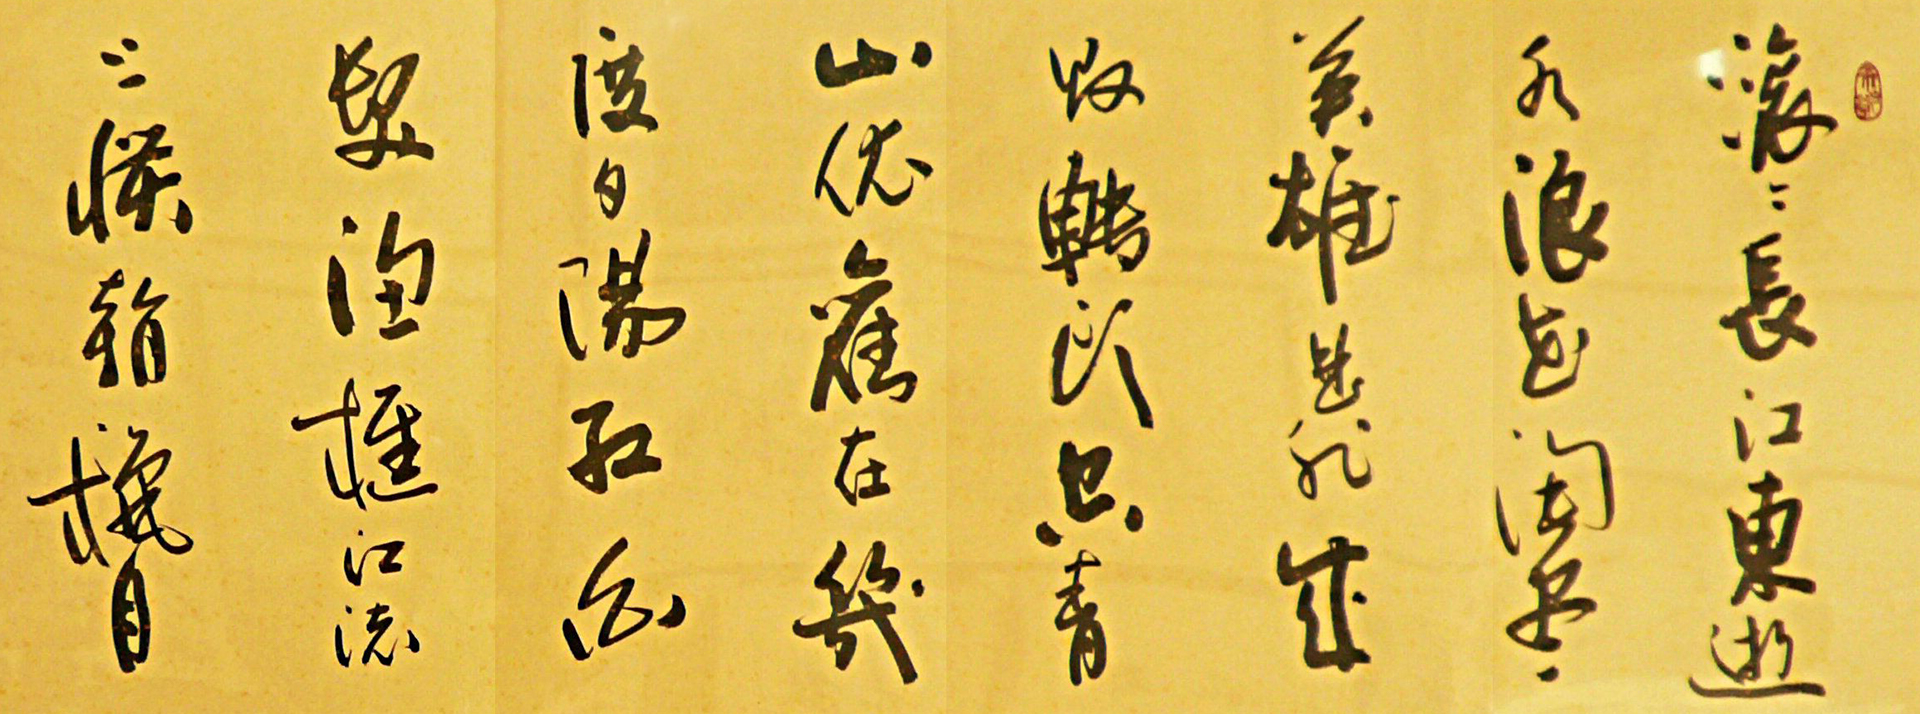 滾〻長江東逝
水浪花淘盡
英雄是非成
敗轉頭空青
山依舊在幾
度夕陽紅白
髮漁樵江渚
上慣看秋月